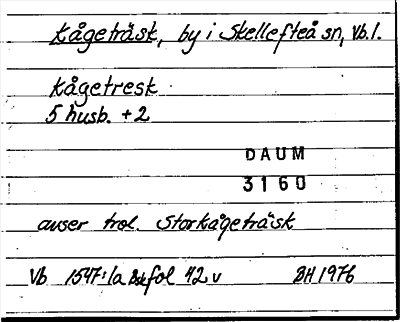 Kågeträsk, by i Skellefteå sn, Vb.l.
Kågetresk
5 husb. + 2
DAUM
3160
avser trol. Storkågeträsk
Vb 1547:1a Bsk fol 42 v BH 1976